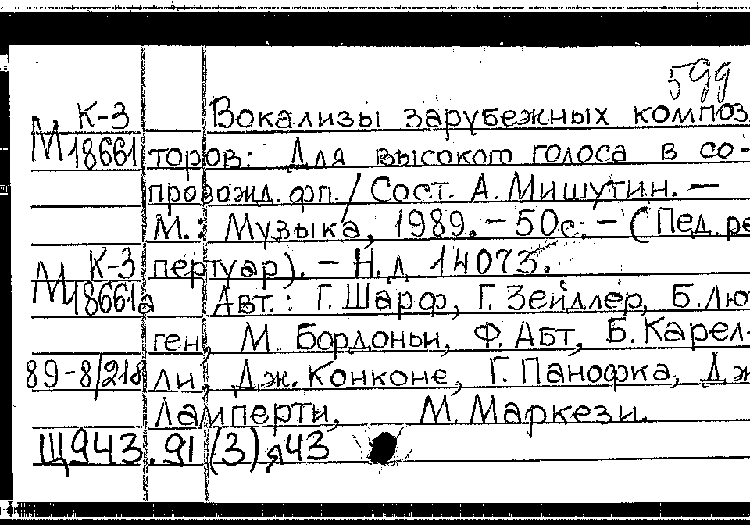 599
К-3 Вокализы зарубежных композ
М18661 торов: Для высокого голоса в со-
провожд. фп. / Сост. А. Мишутин. —
М.: Музыка, 1989. – 50с. – (Пед. ре
К-3 пертуар). – Н.д 14073.
М18661а Авт.: Г. Шарф, Г. Зейдлер, Б. Лют
ген, М. Бордоньи, Ф. Абт, Б. Карел-
89-8/218 ли, Дж. Конконе, Г. Панофка, Дж
Ламперти, М. Маркези.
Щ943.91(3)я43